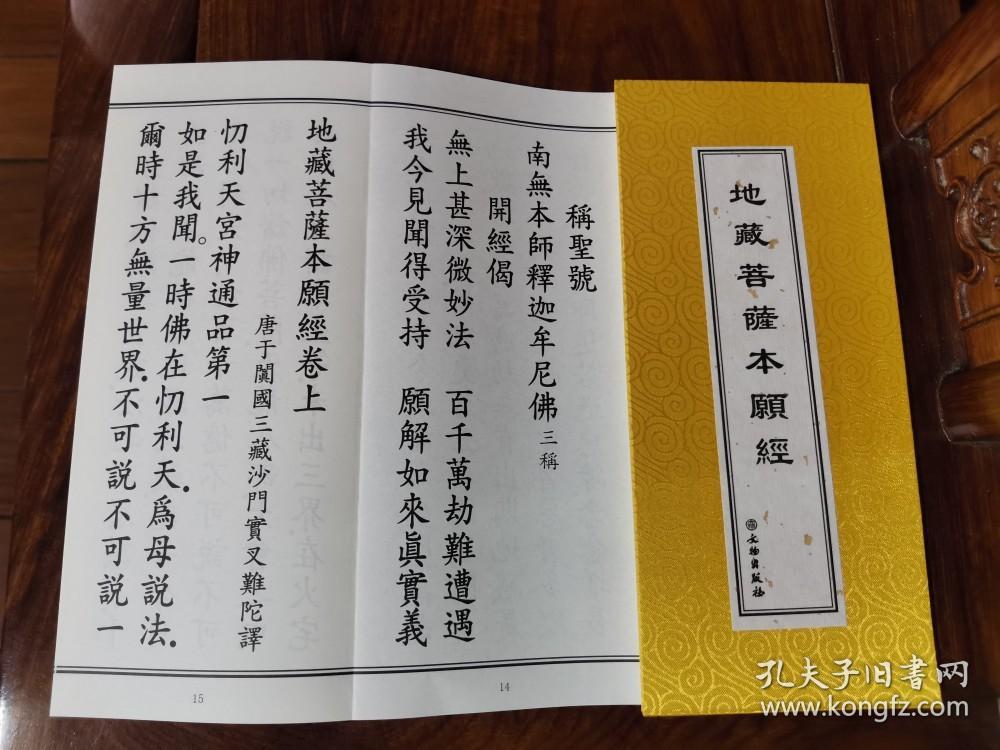 地藏菩薩本願經
文物出版社
稱聖號
南無本師釋迦牟尼佛 三稱
開經偈
無上甚深微妙法 百千萬劫難遭遇
我今見聞得受持 願解如來眞實義
14
地藏菩薩本願經卷上
唐于闐國三藏沙門實叉難陀譯
忉利天宮神通品第一
如是我聞。一時佛在忉利天.爲母說法.
爾時十方無量世界.不可說不可說一
15
孔夫子旧書网
www.kongfz.com